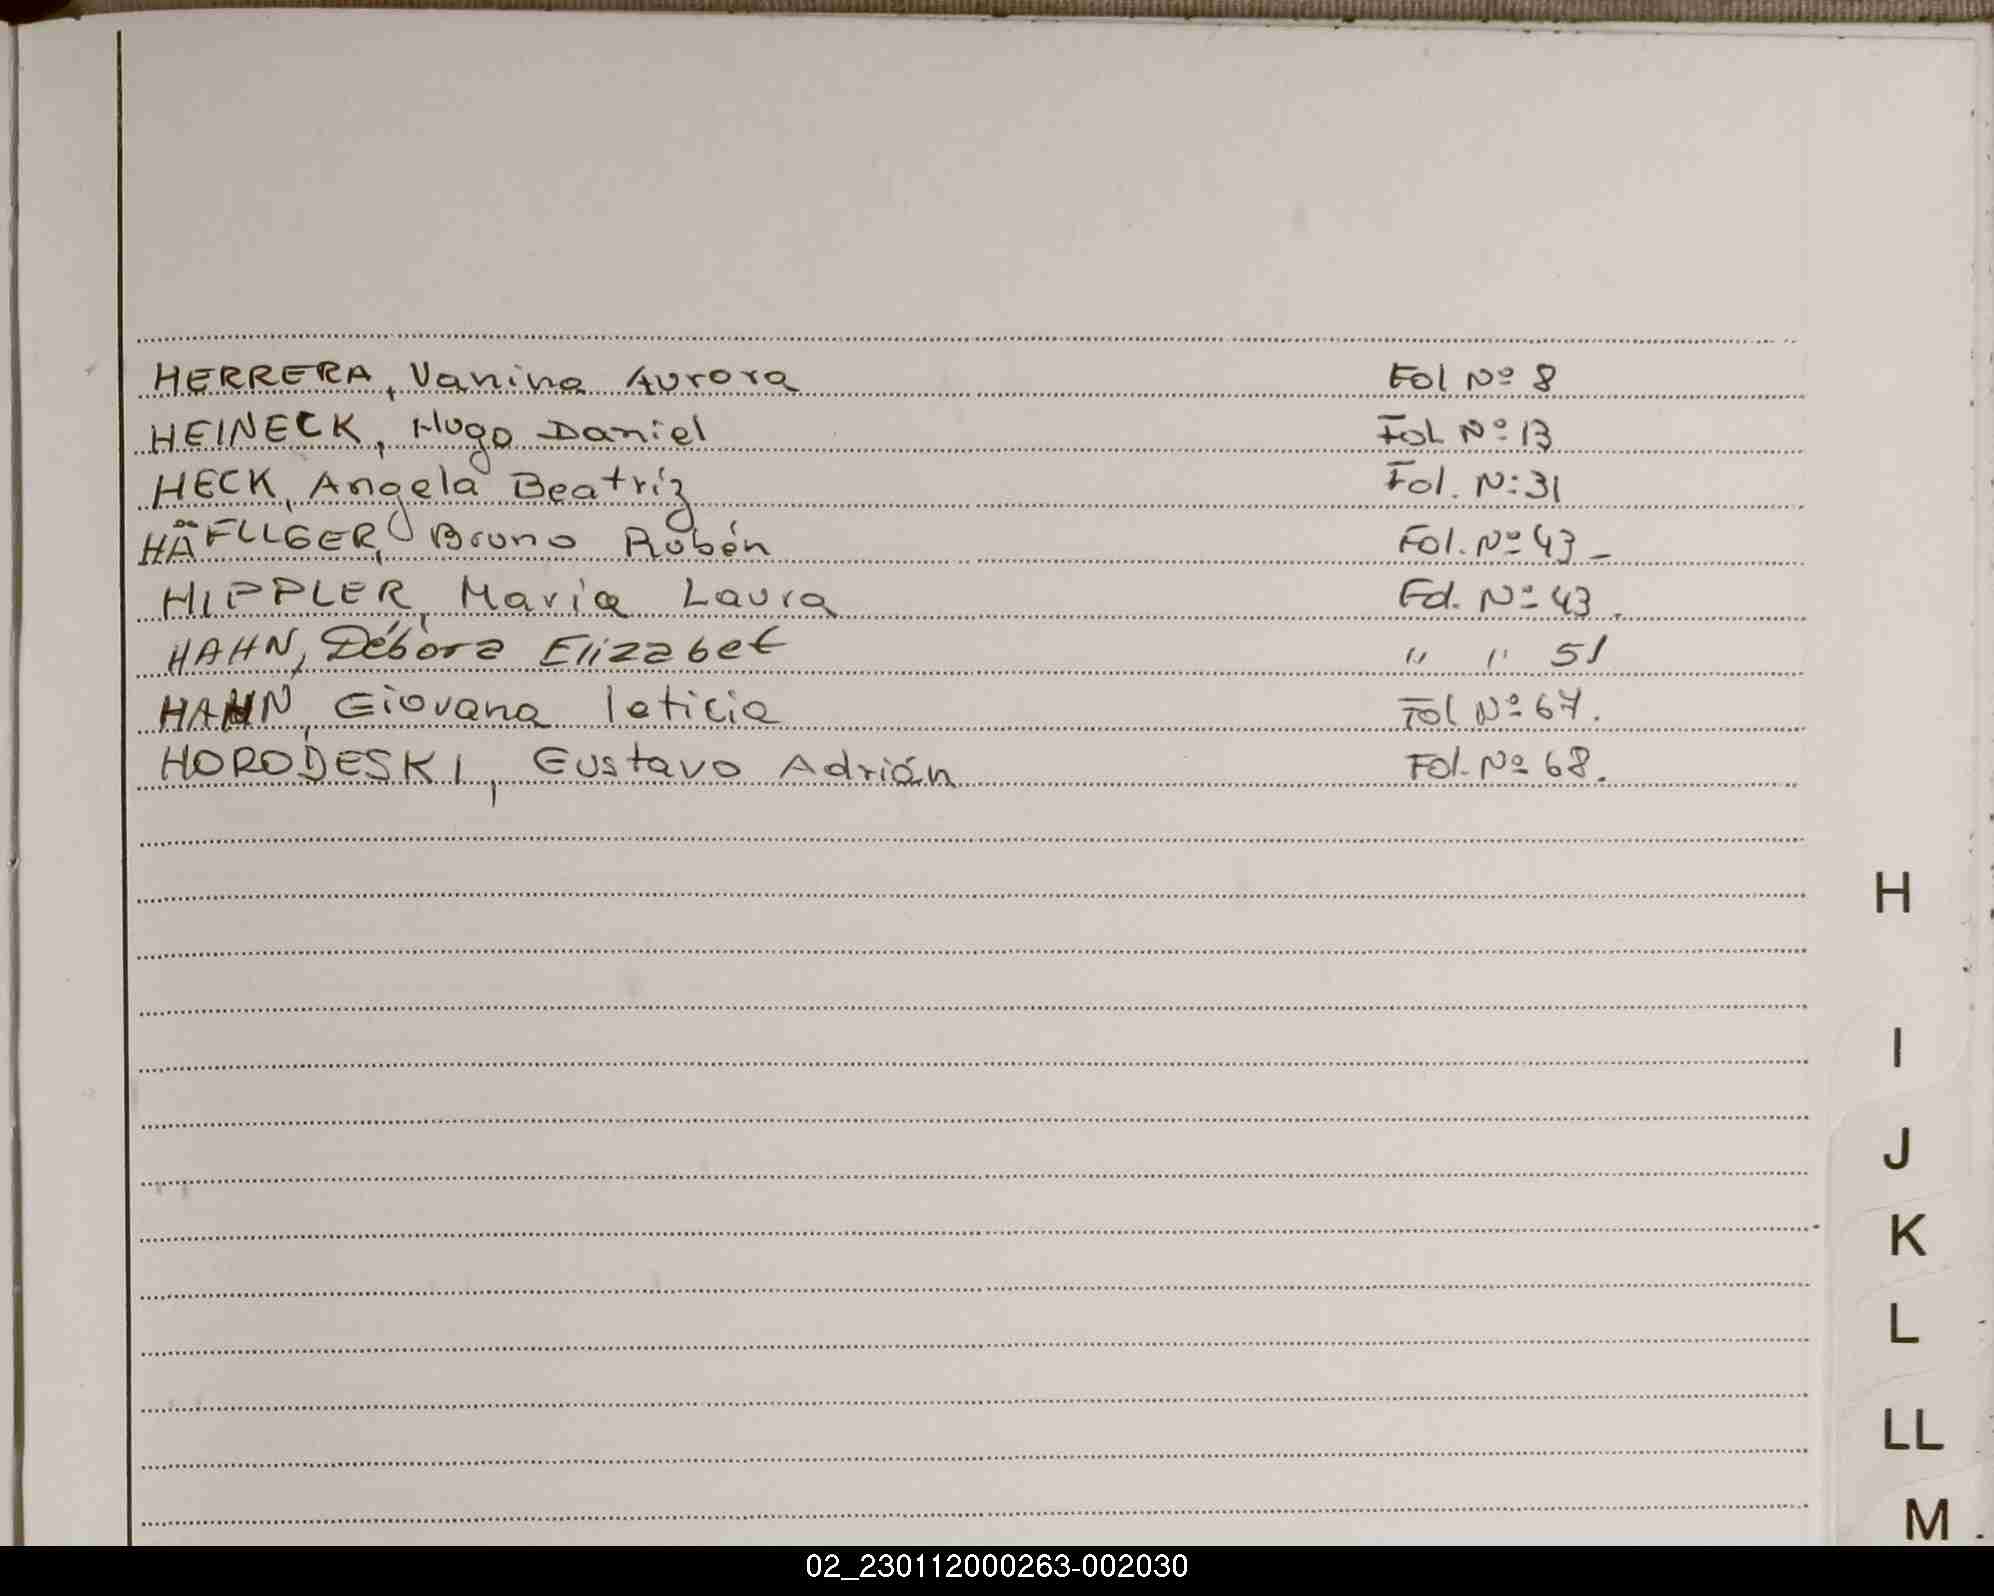 HERRERA, Vanina Aurora Fol Nº 8
HEINECK, Hugo Daniel Fol Nº 13
HECK, Angela Beatríz Fol. N: 31
HÄFLIGER, Bruno Rubén Fol. Nº 43 -
HIPPLER, María Laura Fol. Nº 43.
HAHN, Débora Elizabet " " 51
HAHN, Giovana leticia Fol Nº 67.
HORODESKI, Gustavo Adrián Fol. Nº 68.
H
I
J
K
L
LL
M
02_230112000263-002030